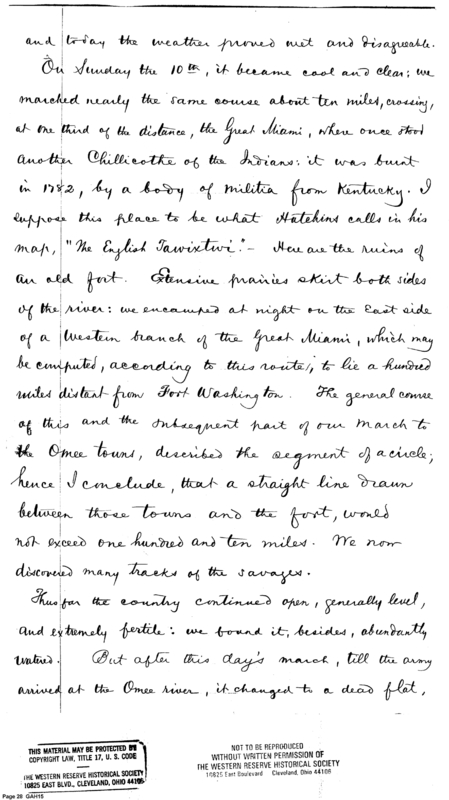 and today the weather proved wet and disagreeable.
On Sunday the 10th, it became cool and clear; we
marched nearly the same course about ten miles, crossing,
at one third of the distance, the Great Miami, where once stood
another Chillicothe of the Indians: it was burnt
in 1782, by a body of militia from Kentucky. I
suppose this place to be what Hutchins calls in his
map, "The English Tawixtwi."- Here are the ruins of
an old fort. Extensive prairies skirt both sides
of the river: we encamped at night on the East side
of a Western branch of the Great Miami, which may
be computed, according to this route, to lie a hundred
miles distant from Fort Washington. The general course
of this and the subsequent part of our march to
the Omee touns, described the segment of a circle;
hence I conclude, that a straight line drawn
between those towns and the fort, would
not exceed one hundred and ten miles. We now
discovered many tracks of the savages.
Thus far the country continued open, generally level,
and extremely fertile: we found it, besides, abundantly
watered. But after this day's march, till the army
arrived at the Omee river, it changed to a dead flat,
THIS MATERIAL MAY BE PROTECTED BY
COPYRIGHT LAW, TITLE 17, U. S. CODE
THE WESTERN RESERVE HISTORICAL SOCIETY
10825 EAST BLVD., CLEVELAND, OHIO 44106
NOT TO BE REPRODUCED
WITHOUT WRITTEN PERMISSION OF
THE WESTERN RESERVE HISTORICAL SOCIETY
10825 East Boulevard Cleveland, Ohio 44106
Page 28 GAH15